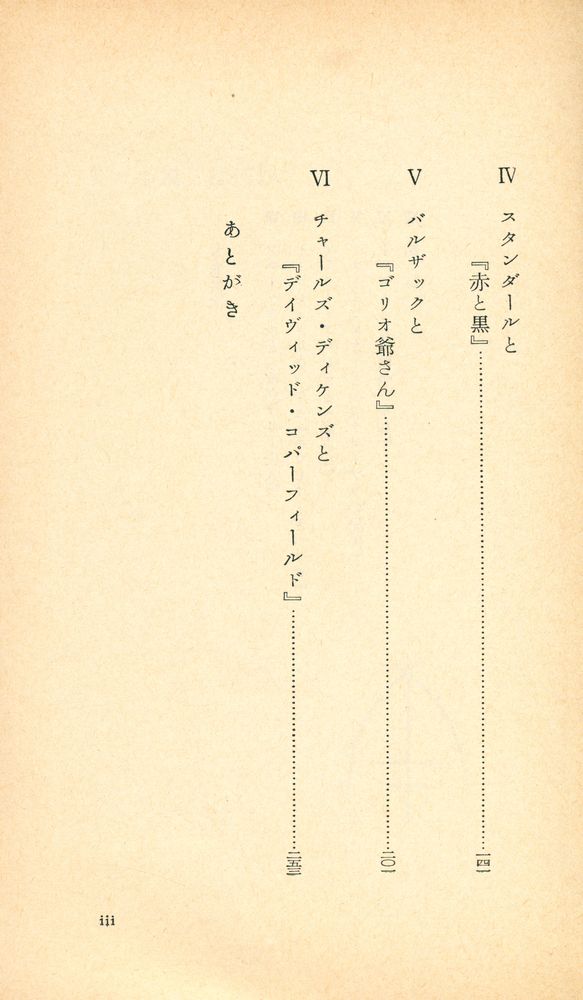 Ⅳ スタンダールと
『赤と黒』……………………一四一
Ⅴ バルザックと
『ゴリオ爺さん』……………………二〇一
Ⅵ チャールズ・ディケンズと
『デイヴィッド・コパーフィールド』……………………二五三
あとがき
iii